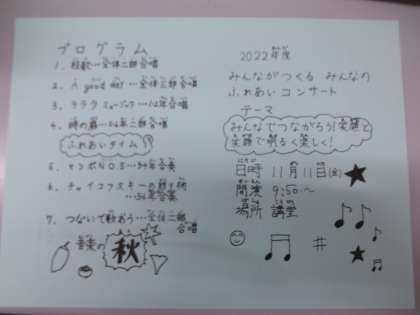 プログラム
1. 校歌…全体二部合唱
2. A good day…全体二部合唱
3. ラララ ミュージック…1.2年合唱
4. 時の扉…5.6年二部合唱
ふれあいタイム
5. マンボNO5…3.4年合奏
6. チャイコフスキーの
…5.6年合奏
7. つないで歌おう…全体二部
合唱
音楽の
秋
2022年度
みんながつくる みんなの
ふれあいコンサート
テーマ
みんなでつながろう!笑顔と
笑顔で明るく楽しく!
日時 11月11日(金)
開演 9:50〜
場所 講堂